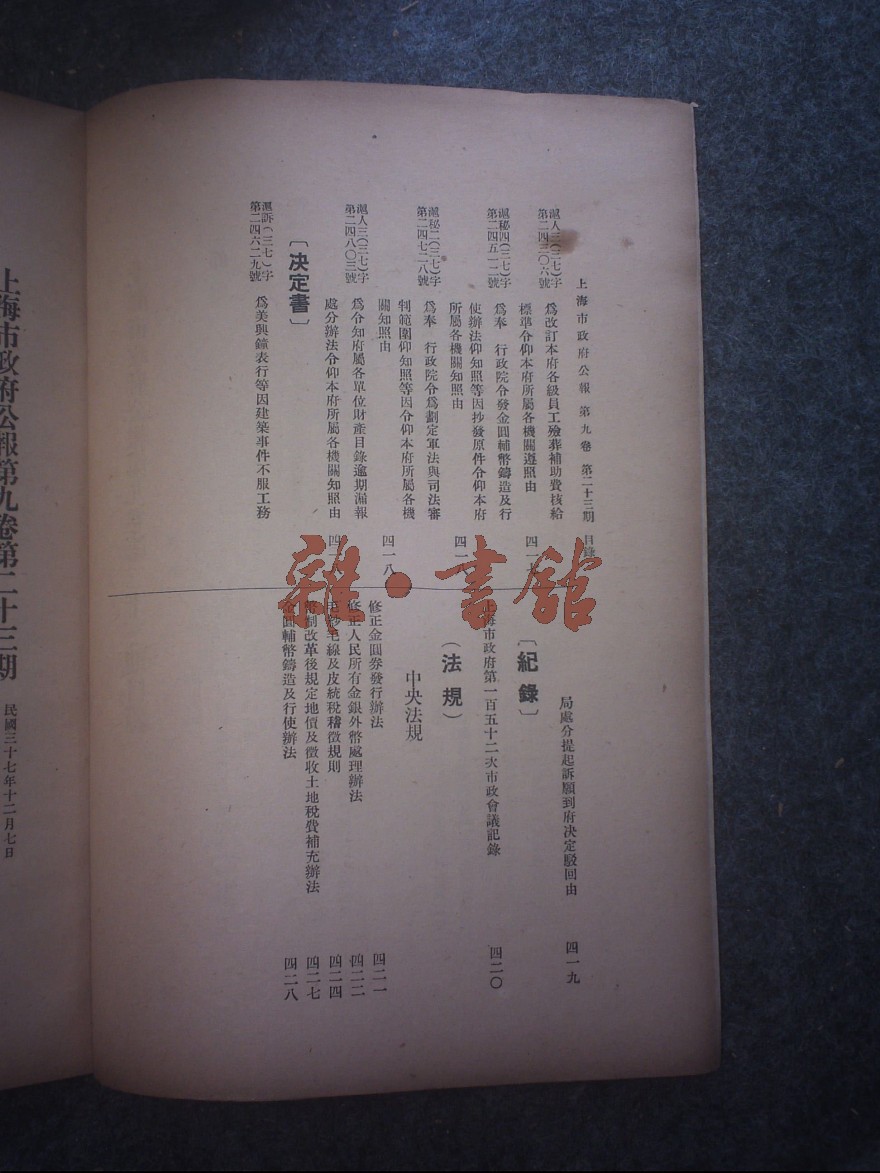 上海市政府公報　第九卷　第二十三期　目錄
滬人三(三七)字
第二四三〇六號
為改訂本府各級員工殮葬補助費核給
標準令仰本府所屬各機關遵照由
四一
滬秘四(三七)字
第二四五一二號
為奉　行政院令發金圓輔幣鑄造及行
使辦法仰知照等因抄發原件令仰本府
所屬各機關知照由
四一
滬秘二(三七)字
第二四七二八號
為奉　行政院令為劃定軍法與司法審
判範圍仰知照等因令仰本府所屬各機
關知照由
四一八
滬人三(三七)字
第二四八〇三號
為令知府屬各單位財產目錄逾期漏報
處分辦法令仰本府所屬各機關知照由
四一八
〔决定書〕
滬訴(三七)字
第二四六二九號
為美興鐘表行等因建築事件不服工務
局處分提起訴願到府决定駁回由
四一九
〔紀錄〕
上海市政府第一百五十二次市政會議記錄
四二〇
(法規)
中央法規
修正金圓券發行辦法
四二一
修正人民所有金銀外幣處理辦法
四二二
毛紗毛線及皮統稅稽徵規則
四二四
幣制改革後規定地價及徵收土地稅費補充辦法
四二七
金圓輔幣鑄造及行使辦法
四二八
上海市政府公報第九卷第二十三期
民國三十七年十二月七日
雜·書館